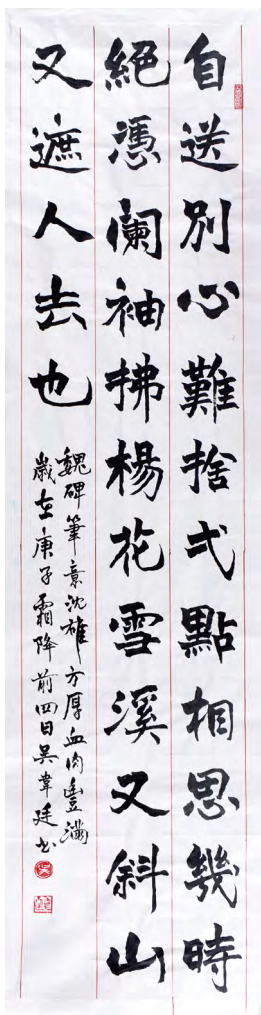 自送別心難捨弌點相思幾時
絕憑闌袖拂楊花雪溪又斜山
又遮人去也
魏碑筆意沈雄方厚血肉豐滿
歲在庚子霜降前四日吳韋廷書